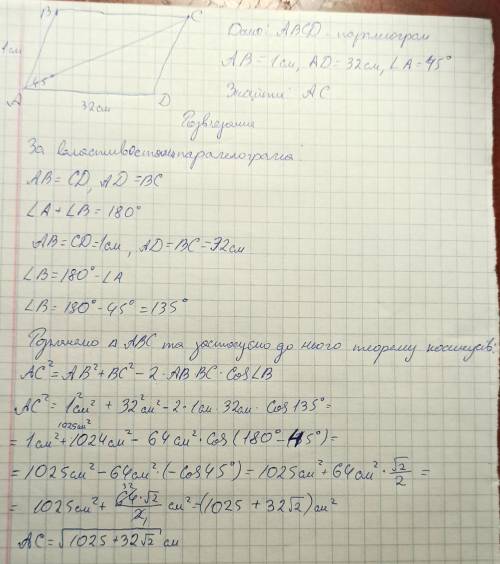 B C
Дано: ABCD - паралелограм
1см
AB = 1см, AD = 32см, ∠A = 45°
45°
Знайти: AC
A 32см D
Розв'язання
За властивостями паралелограма:
AB = CD, AD = BC
∠A + ∠B = 180°
AB = CD = 1см, AD = BC = 32см
∠B = 180° - ∠A
∠B = 180° - 45° = 135°
Розглянемо Δ ABC та застосуємо до нього теорему косинусів:
AC² = AB² + BC² - 2 · AB · BC · Cos∠B
AC² = 1²см² + 32²см² - 2 · 1см · 32см · Cos 135° =
1025см²
= 1см² + 1024см² - 64см² · Cos(180° - 45°) =
= 1025см² - 64см² · (-Cos45°) = 1025см² + 64см² · √2/2 =
= 1025см² + 64 32 · √2/2 1 см² = (1025 + 32√2) см²
AC = √(1025 + 32√2) см